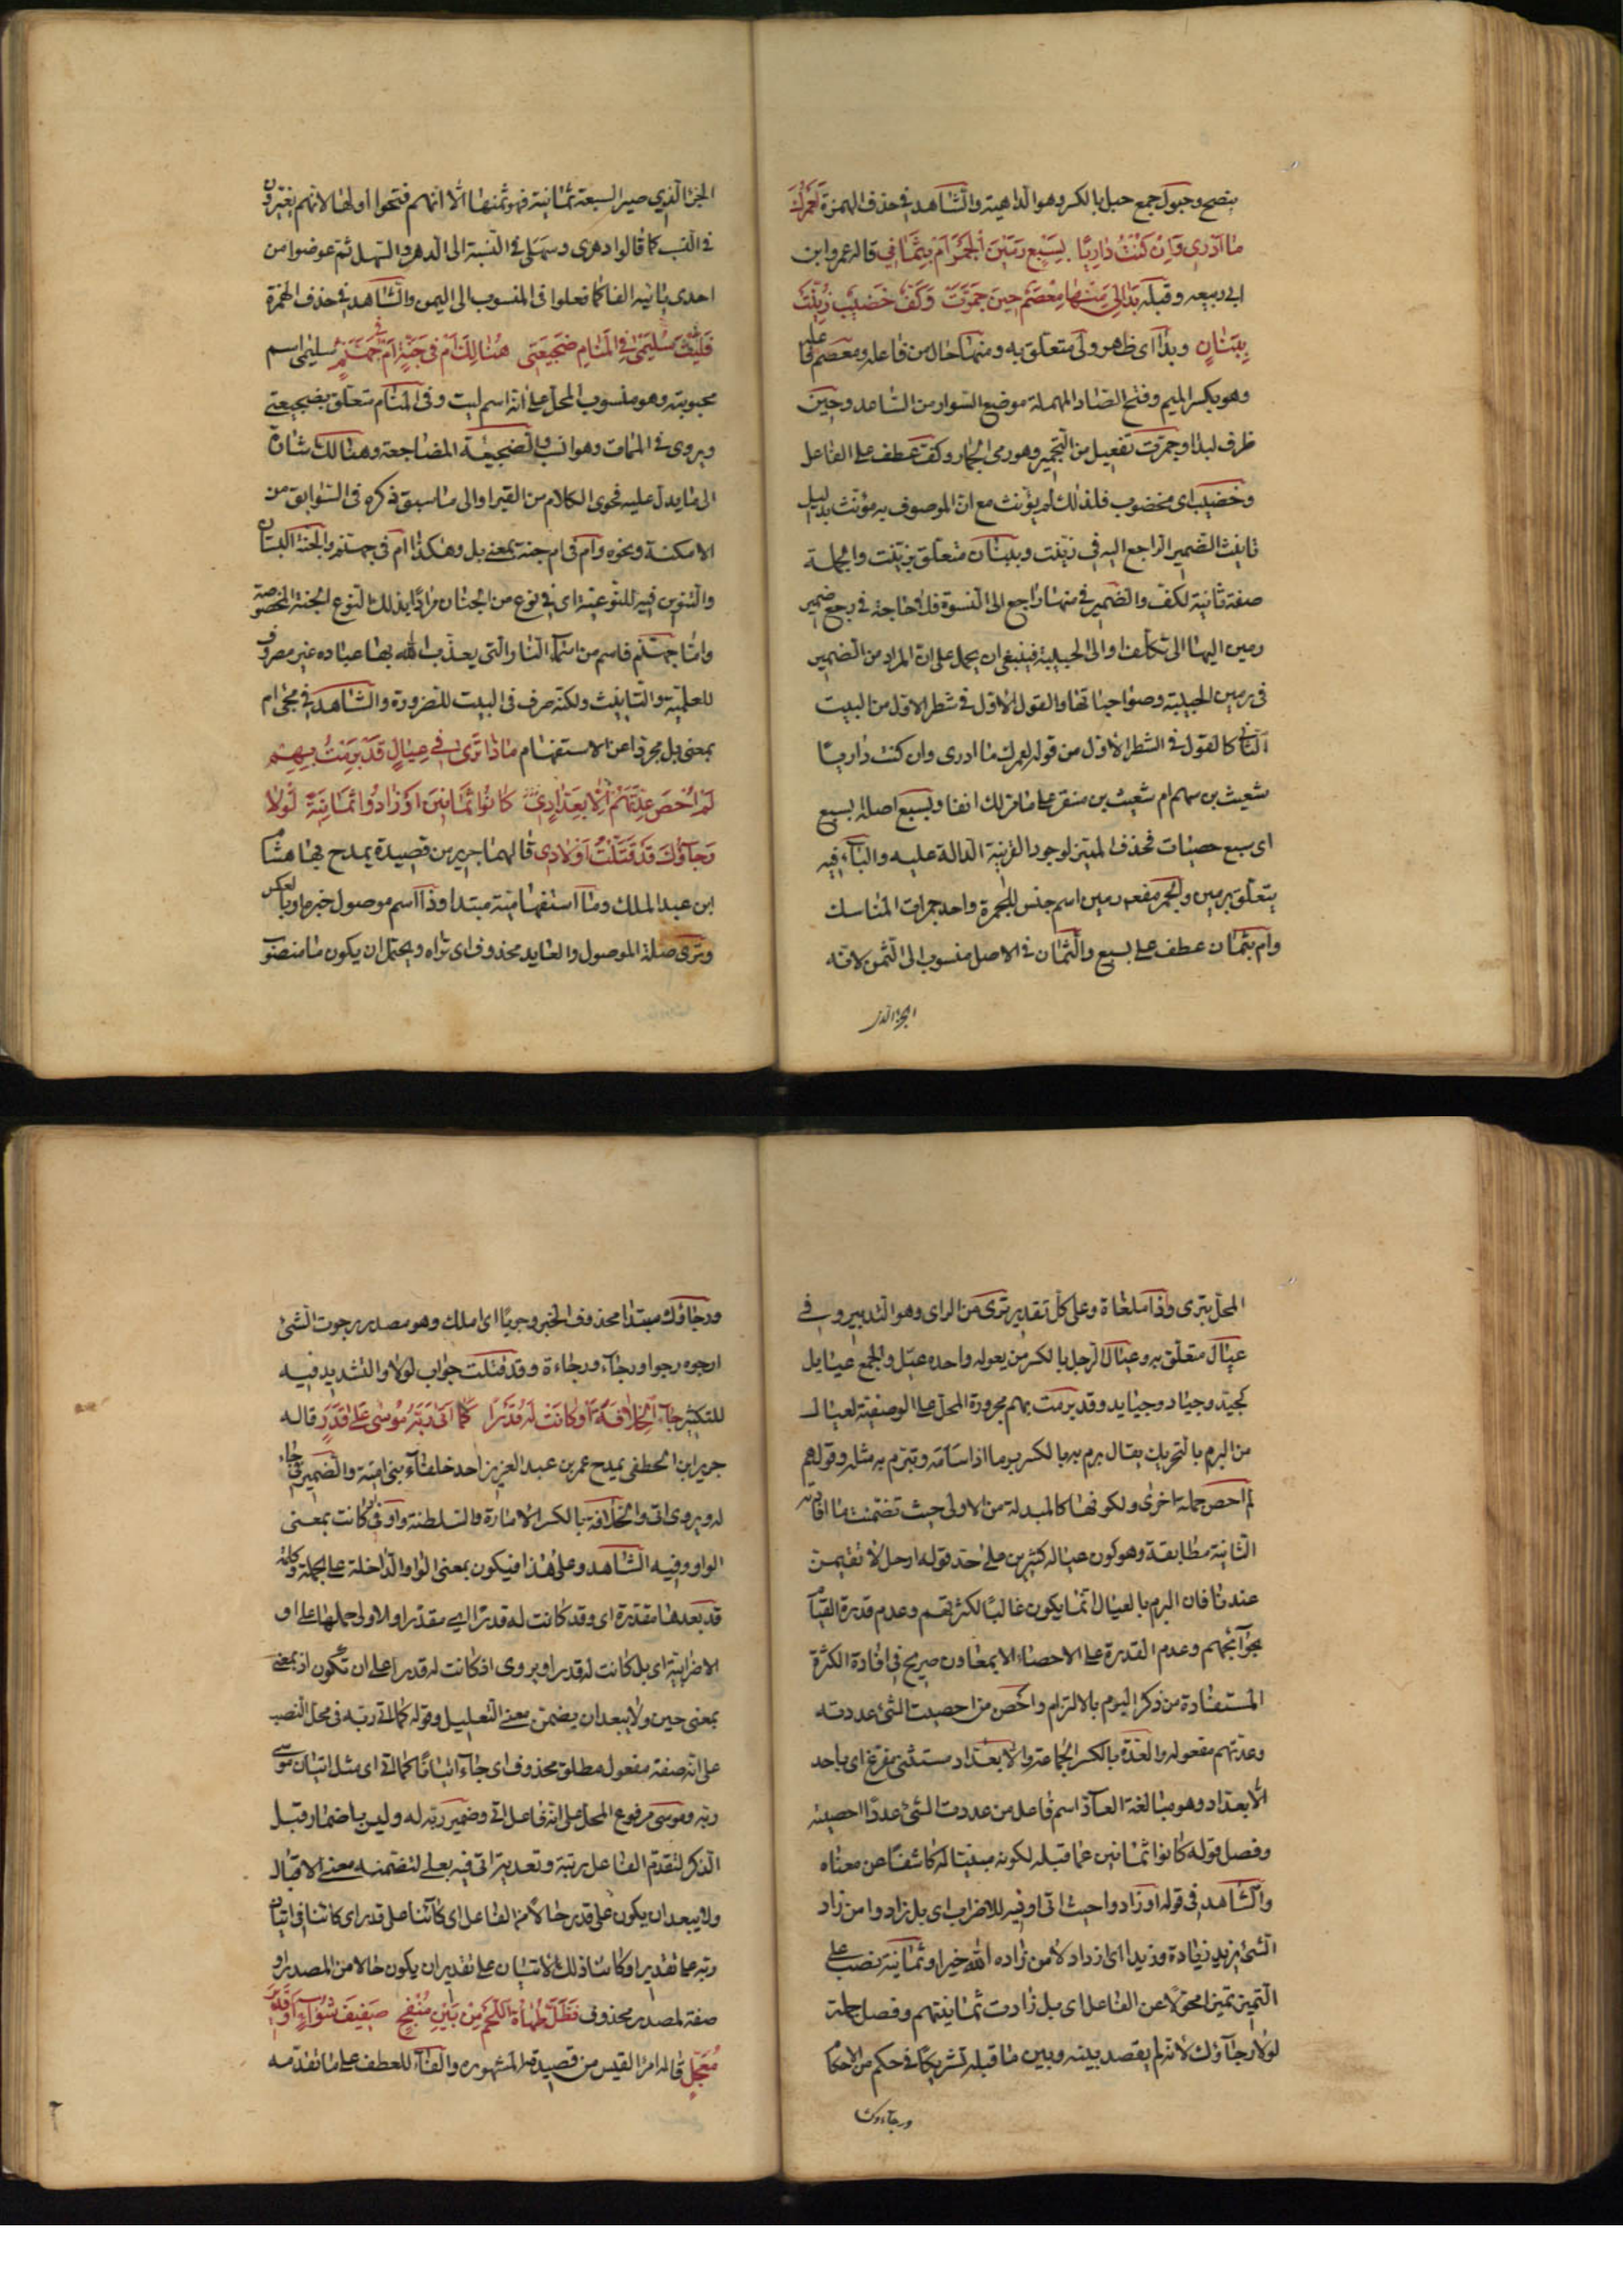 بنصح وحبول جمع حبل بالكسر وهو الداهية والشاهد فى حذف الهمزة لَعَمْرُكَ
مٰا اَدْرى وَاِنْ كُنْتُ دٰارِيًا بِسَبْعٍ رَمَيْنَ الْجَمْرَ اَمْ بِثَمٰانِى قاله عمرو ابن
ابى ربيعه وقبله بَدٰالِى مِنْهٰا مِعْصَمٌ حينَ جَمَّرَتْ وَكَفٌّ خَضيبٌ زُيِّنَتْ
بِبَنٰانٍ وبدا اى ظاهر ولى متعلق به ومنها حال من فاعله ومعصم فاعله
وهو بكسر الميم وفتح الصاد المهملة موضع السوار من الساعد وحين
ظرف لبدا وجمرت تفعيل من التجمير وهو رمى الجمار وكف عطف على الفاعل
وخضيب اى مخضوب فلذلك لم يؤنث مع ان الموصوف به مؤنث بدليل
تانيث الضمير الراجع اليه فى زينت وببنان متعلق بزينت والجملة
صفة ثانية لكف والضمير فى منها راجع الى النسوة فلا حاجة فى رجع ضمير
رمين اليها الى تكلف او الى الحبيبة فينبغى ان يحمل على ان المراد من الضمير
فى رمين الحبيبة وصواحباتها والقول الاول فى شطر الاول من البيت
الثانى كالقول فى الشطر الاول من قوله لعمرك ما ادرى وان كنت داريًا
شعيث بن سهم ام شعيث بن منقر على ما مر لك انفا وبسبع اصله بسبع
اى سبع حصيات فحذف المميز لوجود القرينة الدالة عليه والباء فيه
يتعلق برمين والجمر مفعول رمين اسم جنس للجمرة واحد جمرات المناسك
وام بثمان عطف على بسبع والثمان فى الاصل منسوب الى الثمن لانه
الجزء الذى
الجزء الذى صير السبعة ثمانية فهو ثمنها الا انهم فتحوا اولها لانهم يغيرون
فى النسب كما قالوا دهرى وسهلى فى النسبة الى الدهر والسهل ثم عوضوا من
احدى يائيه الفا كما فعلوا فى المنسوب الى اليمن والشاهد فى حذف الهمزة
فَلَيْتَ سُلَيْمىٰ فِى الْمَنٰامِ ضَجيعَتى هُنٰالِكَ اَمْ فى جَنَّةٍ اَمْ فى جَهَنَّمٍ سليمى اسم
محبوبته وهو منسوب المحل على انه اسم ليت وفى المنام متعلق بضجيعتى
ويروى فى الممات وهو انسب والضجيعة المضاجعة وهنالك اشارة
الى ما يدل عليه فحوى الكلام من القبر او الى ما سبق ذكره فى السوابق من
الامكنة ونحوه وام فى ام جنة بمعنى بل وهكذا ام فى جهنم والجنة البستان
والتنوين فيه للنوعية اى فى نوع من الجنان مرادًا بذلك النوع الجنة المخصوصة
واما جهنم فاسم من اسماء النار التى يعذب الله بها عباده غير مصروف
للعلمية والتانيث ولكنه صرف فى البيت للضرورة والشاهد فى مجئ ام
بمعنى بل مجردا عن الاستفهام مٰاذٰا تَرىٰ فى عِيٰالٍ قَدْ بَرِمْتُ بِهِمْ
لَمْ اُحْصِ عِدَّتَهُمْ اِلّٰا بِعَدّٰادِى كٰانُوا ثَمٰانينَ اَوْ زٰادُوا ثَمٰانِيَةً لَوْلٰا
رَجٰاؤُكَ قَدْ قَتَّلْتُ اَوْلٰادِى قالهما جرير من قصيدة يمدح بها هشام
ابن عبد الملك وما استفهامية مبتدا وذا اسم موصول خبر ما او بالعكس
وترى صلة الموصول والعايد محذوف اى تراه ويحتمل ان يكون ما منصوب
المحل بترى وذا ملغاة وعلى كل تقدير ترى من الراى وهو التدبير وفى
عيال متعلق به وعيال الرجل بالكسر من يعوله واحده عيل والجمع عيايل
كجيد وجياد وجيايد وقد برمت بهم مجرورة المحل على الوصفية لعيال
من البرم بالتحريك يقال برم به بالكسر برما اذا سامه وتبرم به مثله وقوله
لم احص جملة اخرى ولكونها كالمبدلة من الاولى حيث تضمنت ما افادته
الثانية مطابقة وهو كون عياله كثيرين على حد قوله ارحل لا تقيمن
عندنا فان البرم بالعيال انما يكون غالبًا لكثرتهم وعدم قدرة القيام
بحوائجهم وعدم القدرة على الاحصاء الا بمعاون صريح فى افادة الكثرة
المستفادة من ذكر البرم بالالتزام واحص من احصيت الشئ عددته
وعدتهم مفعوله والعدة بالكسر الجماعة والا بعداد مستثنى مفرغ اى باحد
الا بعداد وهو مبالغة العاد اسم فاعل من عددت الشئ عددًا احصيته
وفصل قوله كانوا ثمانين عما قبله لكونه مبينا له كاشفًا عن معناه
والشاهد فى قوله او زادوا حيث اتى او فيه للاضراب اى بل زادوا من زاد
الشئ يزيد زيادة وزيدا اى ازداد لا من زاده الله خيرا وثمانية نصب على
التميز تميزا محولا عن الفاعل اى بل زادت ثمانيتهم وفصل جملة
لولا رجاؤك لانه لم يقصد بينه وبين ما قبله تشريكًا فى حكم من الاحكام
ورجاءوك
ورجاؤك مبتدا محذوف الخبر وجوبًا اى املك وهو مصدر رجوت الشئ
ارجوه رجوا ورجاء ورجاءة وقد قتلت جواب لولا والتشديد فيه
للتكثير جٰاءَ الْخِلٰافَةَ اَوْ كٰانَتْ لَهُ قَدَرًا كَمٰا اَتىٰ رَبَّهُ مُوسىٰ عَلىٰ قَدَرٍ قاله
جرير ابن الخطفى يمدح عمر بن عبد العزيز احد خلفاء بنى امية والضمير فى جاء
له ويروى اتى والخلافة بالكسر الامارة والسلطنة واو فى او كانت بمعنى
الواو وفيه الشاهد وعلى هذا فيكون بمعنى الواو الداخلة على الجملة وكلمة
قد بعدها مقدرة اى وقد كانت له قدرًا اى مقدرا والاولى حملها على او
الاضرابية اى بل كانت له قدرا ويروى اذ كانت له قدرا على ان تكون اذ بمعنى
بمعنى حين ولا يبعد ان يضمن معنى التعليل وقوله كما اتى ربه فى محل النصب
على انه صفة مفعول مطلق محذوف اى جاء اتيانًا كما اتى اى مثل اتيان موسى
ربه وموسى مرفوع المحل على انه فاعل اتى وضمير ربه له وليس باضمار قبل
الذكر لتقدم الفاعل رتبة وتعدية اتى فيه بعلى لتضمنه معنى الاقبال
ولا يبعد ان يكون على قدر حالا من الفاعل اى كائنا على قدر اى كائنا فى اتيان
ربه على تقدير او كائنا ذلك الاتيان على تقدير ان يكون حالا من المصدر او
صفة لمصدر محذوف فَظَلَّ طُهٰاةُ اللَّحْمِ مِنْ بَيْنِ مُنْضِجٍ صَفيفَ شِوٰاءٍ اَوْ قَديرٍ
مُعَجَّلِ قاله امرا القيس من قصيدته المشهورة والفاء للعطف على ما تقدمه